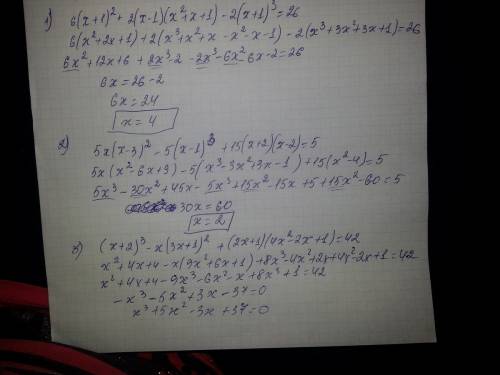 1) 6(x+1)²+2(x-1)(x²+x+1)-2(x+1)³=26
6(x²+2x+1)+2(x³+x²+x-x²-x-1)-2(x³+3x²+3x+1)=26
6x²+12x+6+2x³-2-2x³-6x²-6x-2=26
6x=26-2
6x=24
x=4
2) 5x(x-3)²-5(x-1)³+15(x+2)(x-2)=5
5x(x²-6x+9)-5(x³-3x²+3x-1)+15(x²-4)=5
5x³-30x²+45x-5x³+15x²-15x+5+15x²-60=5
30x=60
x=2
3) (x+2)³-x(3x+1)²+(2x+1)(4x²-2x+1)=42
x²+4x+4-x(9x²+6x+1)+8x³-4x²+2x+4x²-2x+1=42
x²+4x+4-9x³-6x²-x+8x³+1=42
-x³-5x²+3x-37=0
x³+5x²-3x+37=0